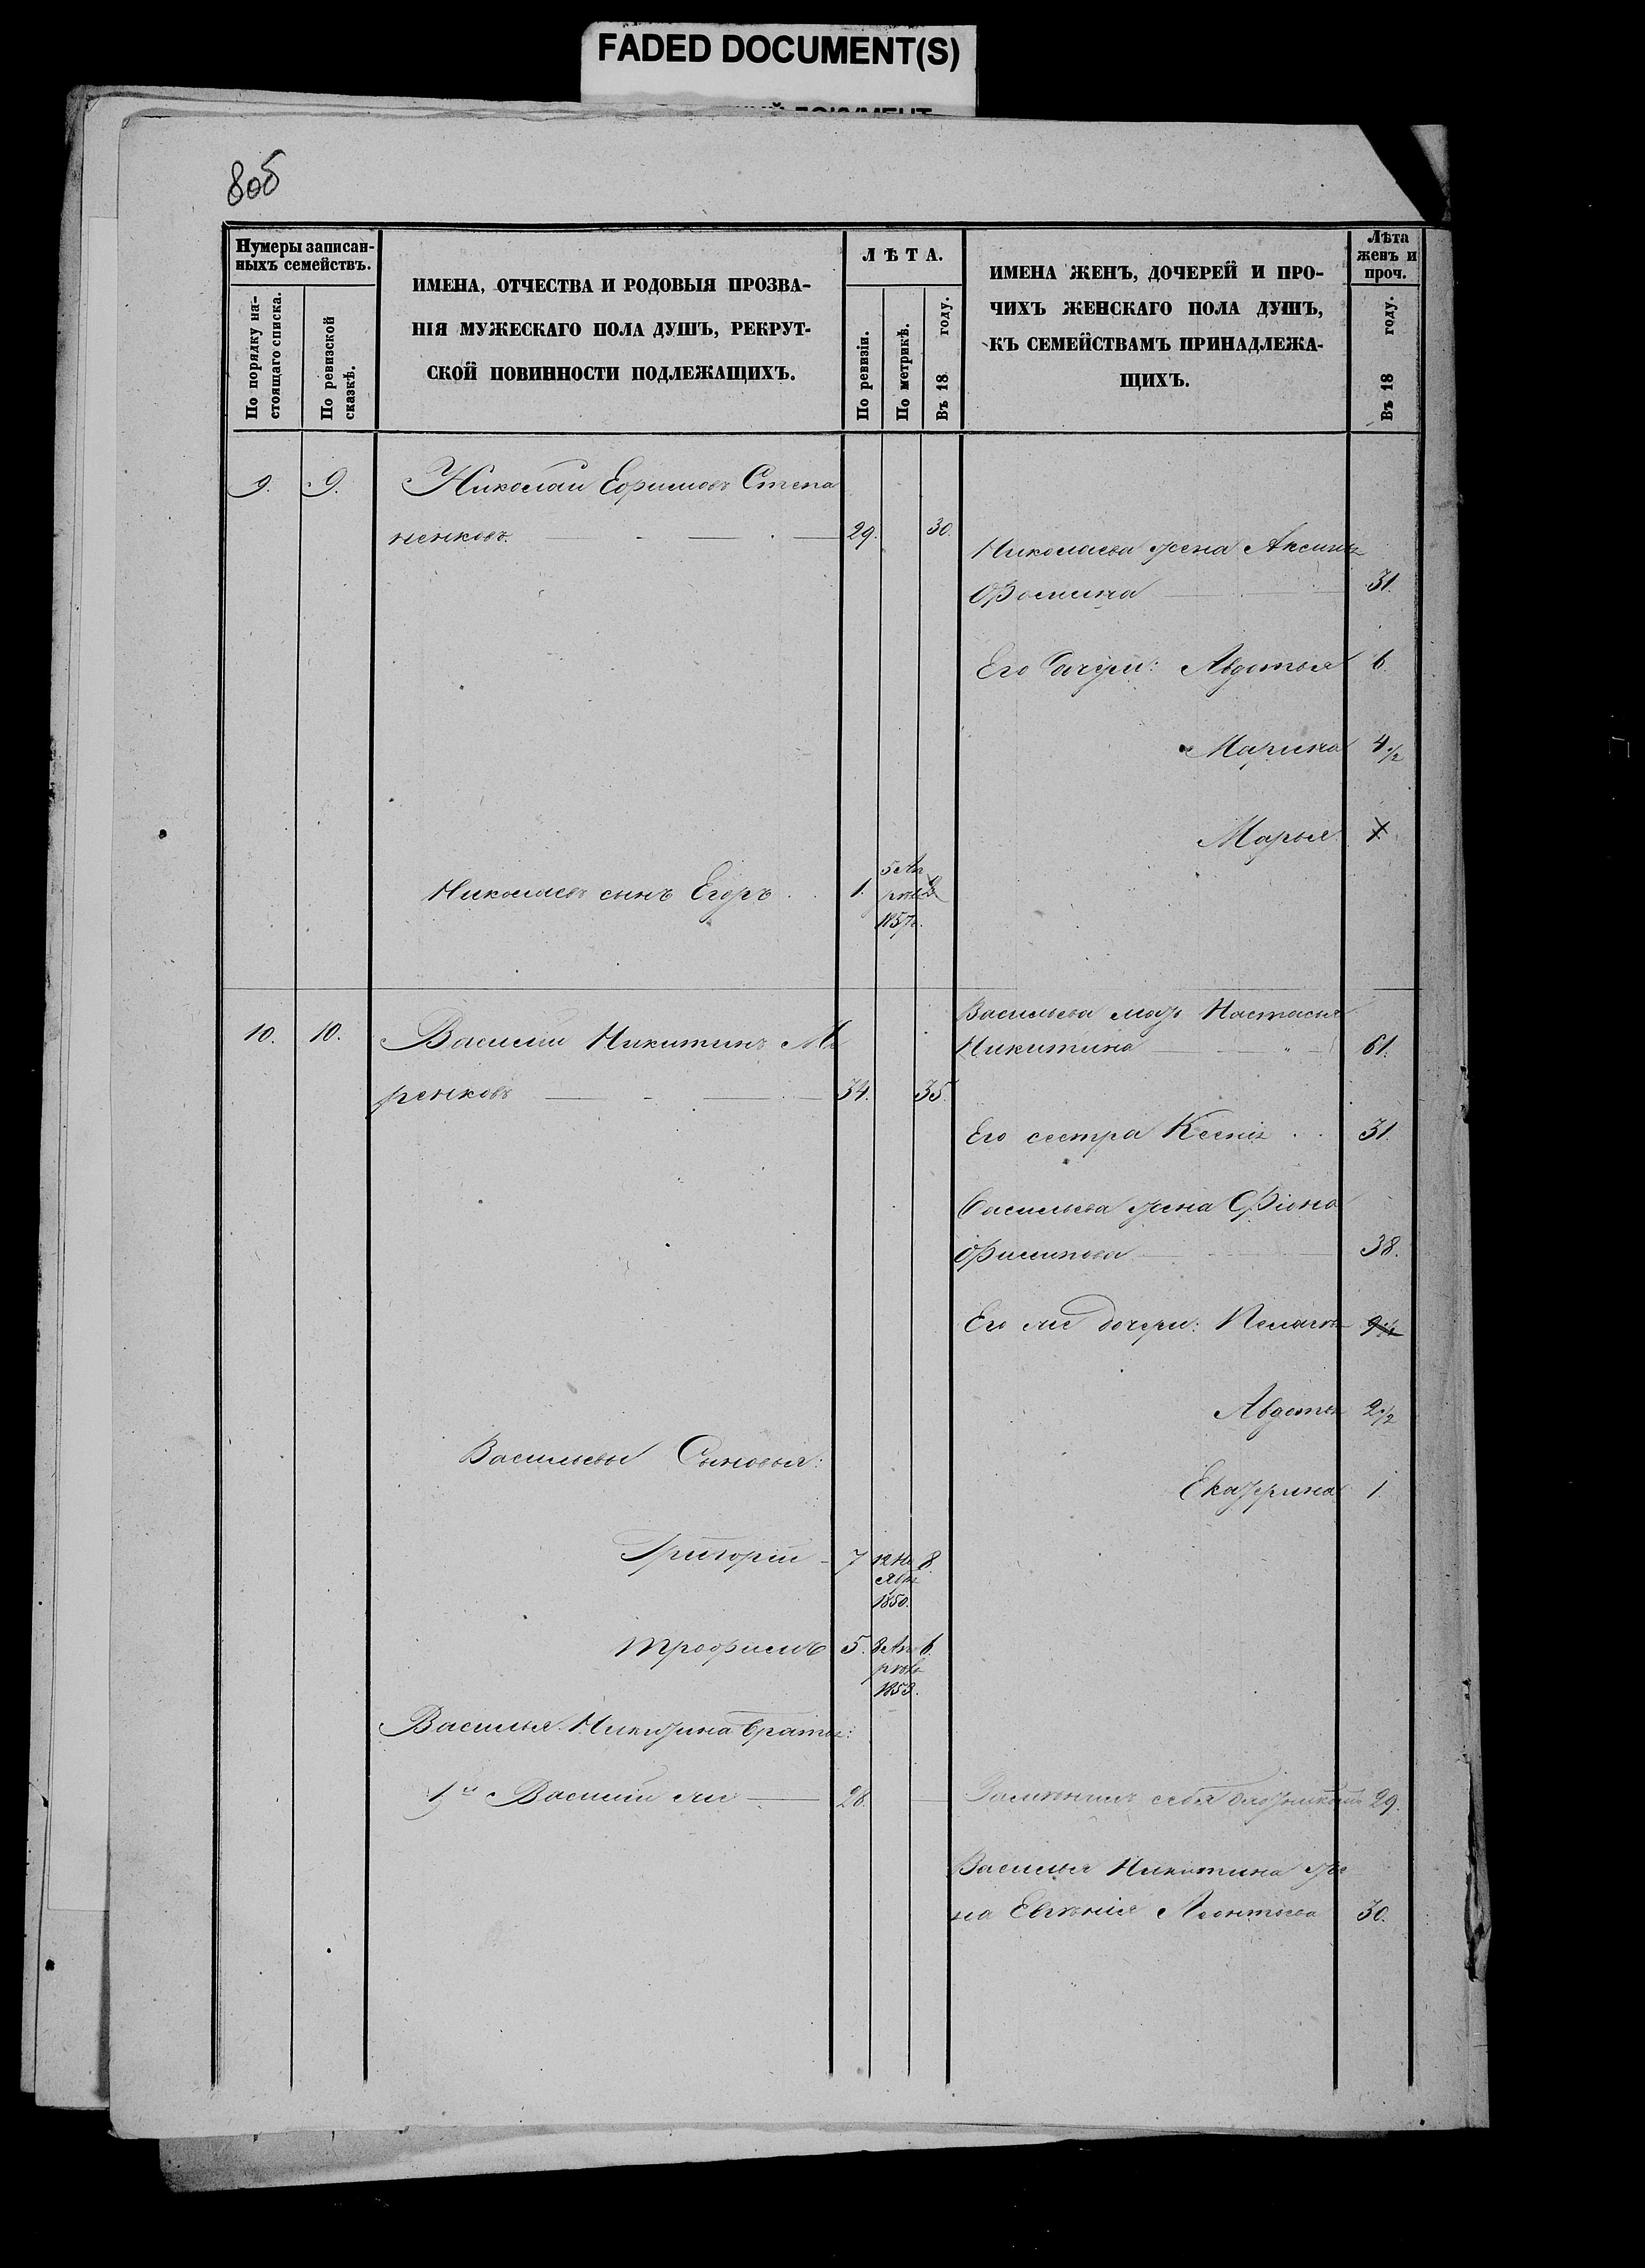 FADED DOCUMENT(S)
8об
Нумеры записан-
ныхъ семействъ.
По порядку на-
стоящаго списка.
По ревизской
сказкѣ.
ИМЕНА, ОТЧЕСТВА И РОДОВЫЯ ПРОЗВА-
НІЯ МУЖЕСКАГО ПОЛА ДУШЪ, РЕКРУТ-
СКОЙ ПОВИННОСТИ ПОДЛЕЖАЩИХЪ.
ЛѢТА.
По ревизіи.
По метрикѣ.
Въ 18 году.
ИМЕНА ЖЕНЪ, ДОЧЕРЕЙ И ПРО-
ЧИХЪ ЖЕНСКАГО ПОЛА ДУШЪ,
КЪ СЕМЕЙСТВАМЪ ПРИНАДЛЕЖА-
ЩИХЪ.
Лѣта
женъ и
проч.
Въ 18 году.
9. 9. Николай Ефимовъ Степа
ненковъ. 29. 30.
Николаева жена Аксинья
Фомина 31.
Его дочери: Авдотья 6
Марина 4 1/2
Марья 1
Николаевъ сынъ Егоръ 1. 5 Ап
рѣля
1857
10. 10. Василій Никитинъ Ме
ренковъ 34. 35.
Васильева мать Настасья
Никитина 61.
Его сестра Ксенія 31.
Васильева жена Фіона
Филипова 38.
Его же дочери: Пелагея 9 1/2
Авдотья 2 1/2
Екатерина 1
Васильевы Сыновья:
Григорій 7 12 Но 8.
ября
1850.
Трофимъ 5. 8 Ап 6.
рѣля
1853.
Василья Никитина братья:
1й Василій же 28. себя 29.
Василья Никитина же
на Евгенія Леонтьева 30.